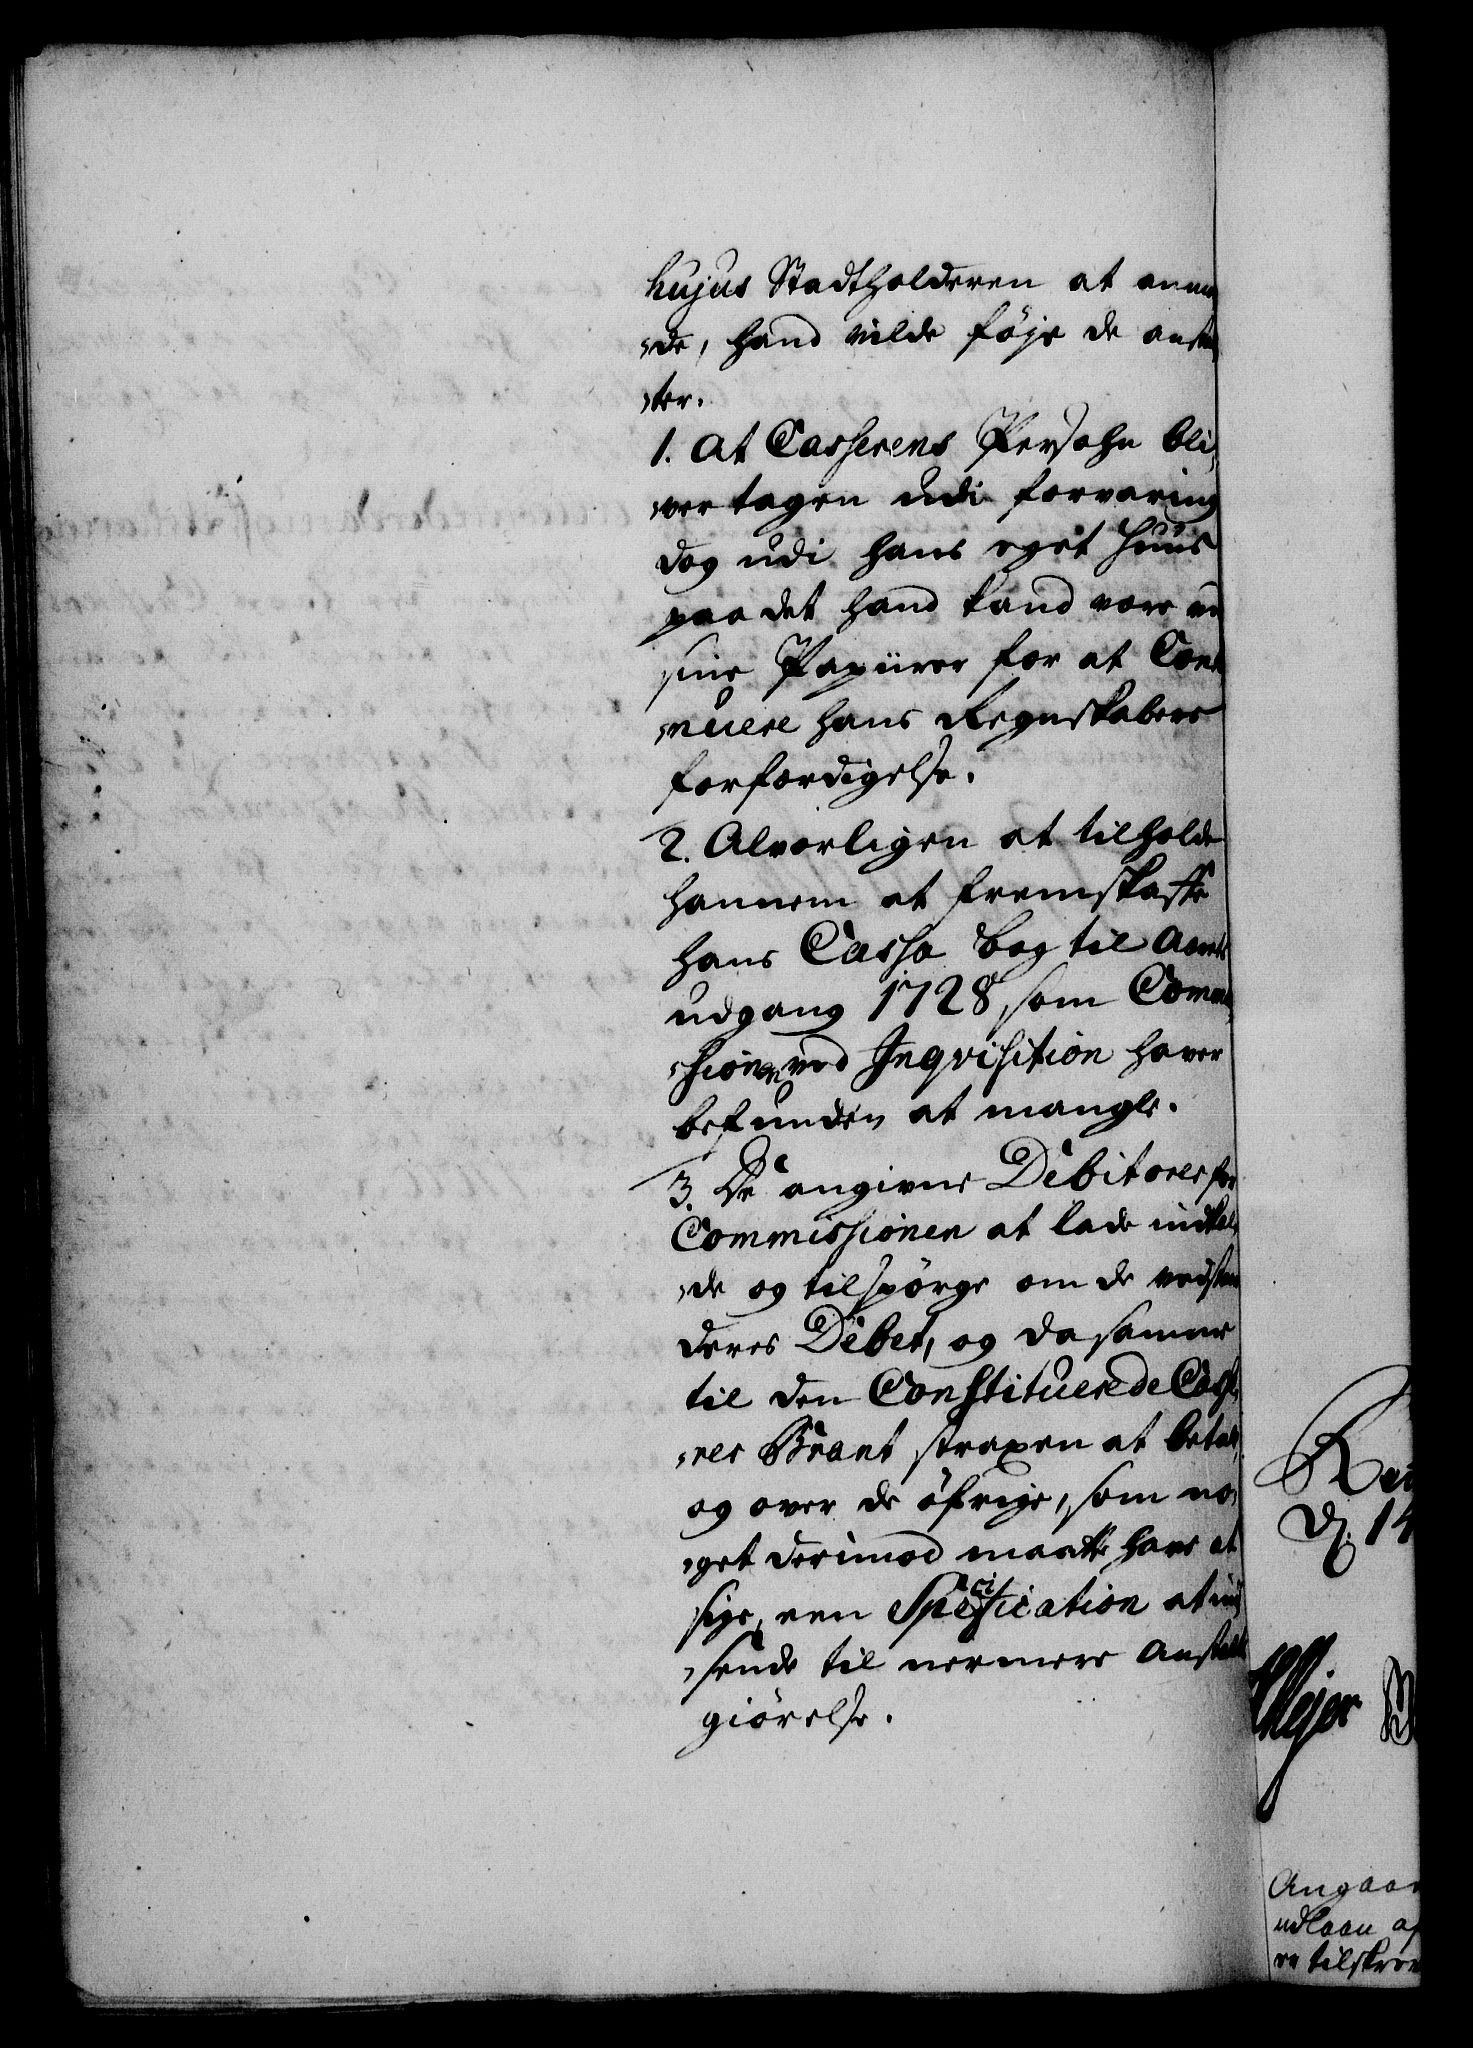 hujus Stadtholderen at anmo
de, hand vilde föje de anstal
ter.
1. at Casserens Persohn bli
ver tagen udi forvaring
dog udi hans eget Huus
paa det hand kand være ve
sine Papiirer for at Conti
nuere hans Regnskabers
forfærdigelse.
2. Alvorligen at tilholde
hannem at fremskaffe
hans Cassa bog til Aarets
udgang 1728 som Commis
sionen ved Inqvisition haver
befunden at mangle.
3. De angivne Debitores for
Commissionen at lade indkal
de og tilspörge om de vedstaa
deres Debet, og da samme
til den Constituerede Casse
rer Brant straxen at betale
og over de öfrige, som no
get derimod maatte have at
sige, een Specification at ind
sende til nermere Anstalts
giörelse.
D. 14
Meyer
Angaa
udlaan af
tilskrev